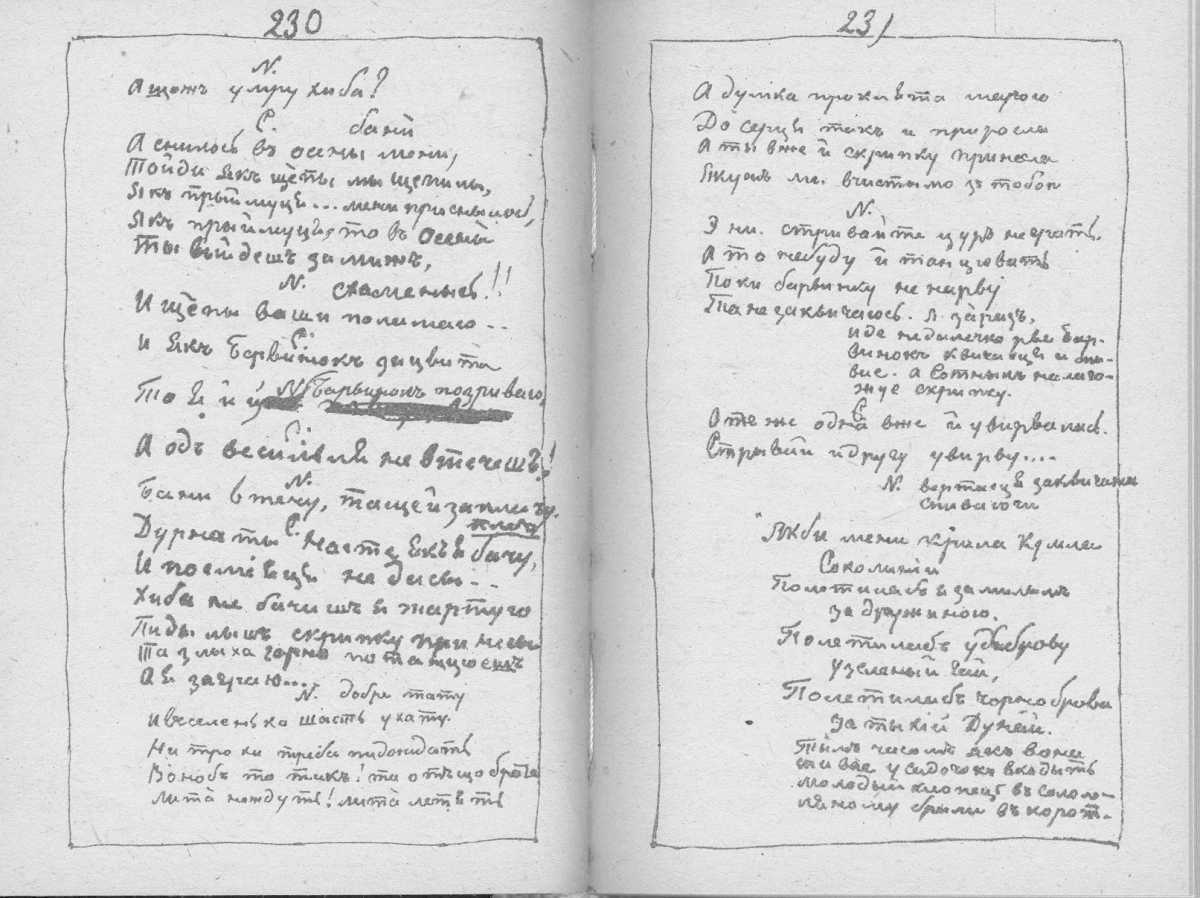 230
N.
А щожъ умру хиба?
С. бачъ
А снилось въ осены мени,
Тойди якъ щепы мы щепылы,
Якъ прыймуця... мени приснылось,
Якъ прыймуця, то въ осены
Ты выйдешъ замижъ,
N. схаменысь!!
И щепы ваши поламаю..
С.
И якъ барвінокъ зацвита
То я и й N барвинокъ позриваю,
С.
А одъ весилля не втечешъ!
N.
втечу, та щей заплачу.
плачу
Дурна ты С. Настя, якъ я бачу,
И посмияця не дась...
Хиба не бачишъ я жартую
Пиды лышъ скрипку принесы
Та злыха гарно потанцюешъ
А я заграю...
N. добре тату
И веселенько шасть у хату.
Ни трохи треба пидождать
Воно бъ то такъ! та отъ що братя
Лита не ждуть! лита летять
231
А думка проклята
До серця такъ и приросла
А ты вже й скрипку принесла
ми. зъ тобою
N.
Э ни. стривайте цуръ не грать.
А то небуду й танцювать
Поки барвинку не нарву
Та не заквичаюсь. Я заразъ,
Иде недалечко рве бар-
винокъ квичаеця и спи-
вае. а Сотныкъ налаго-
жуе скрипку.
С.
Оте же одна вже й увирвалась.
Стрывай и другу увирву....
N. вертаеця заквичана
спиваючи
"Якби мени крила крила
Соколинии
Полетила бъ я за милымъ
За дружиною.
Полетила бъ у дуброву
У зеленый гай,
Полетила бъ чорноброва
За тыхій Дунай.
Тымъ часомъ якъ вона
спивае у садочокъ входыть
молодый хлопець въ соломъ-
яному брыли въ корот-